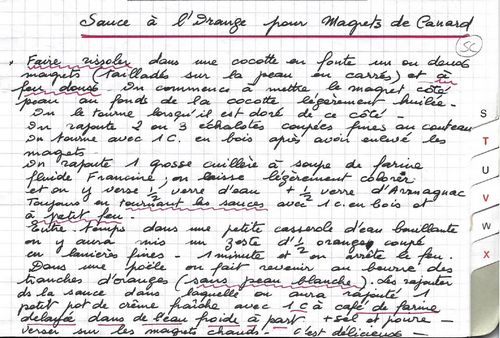 Sauce à l'Orange pour Magrets de Canard
SC
. Faire rissoler dans une cocotte en fonte un ou deux
magrets (Taillades sur la peau en carrés) et à
feu doux. On commence à mettre le magret côté
peau au fonds de la cocotte légèrement huilée.
On le tourne lorsqu'il est doré de ce côté.
On rajoute 2 ou 3 échalotes coupées fines au couteau
On tourne avec 1 C. en bois après avoir enlevé les
magrets.
On rajoute 1 grosse cuillère à soupe de farine
fluide Francine, on laisse légèrement colorer
et on y verse 1/2 verre d'eau + 1/2 verre d'Armagnac
Toujours en tournant les sauces avec 1 c. en bois et
à petit feu.
Entre-temps dans une petite casserole d'eau bouillante
on y aura mis un zeste d'1/2 orange, coupé
en lanières fines - 1 minute et on arrête le feu.
Dans une poële on fait revenir au beurre des
tranches d'oranges (sans peau blanche). Les rajouter
ds la sauce dans laquelle on aura rajouté 1
petit pot de crème fraîche avec 1 C à café de farine
delayée dans de l'eau froide à part + sel et poivre -
verser sur les magrets chauds - C'est délicieux -
S
T
U
V
W
X